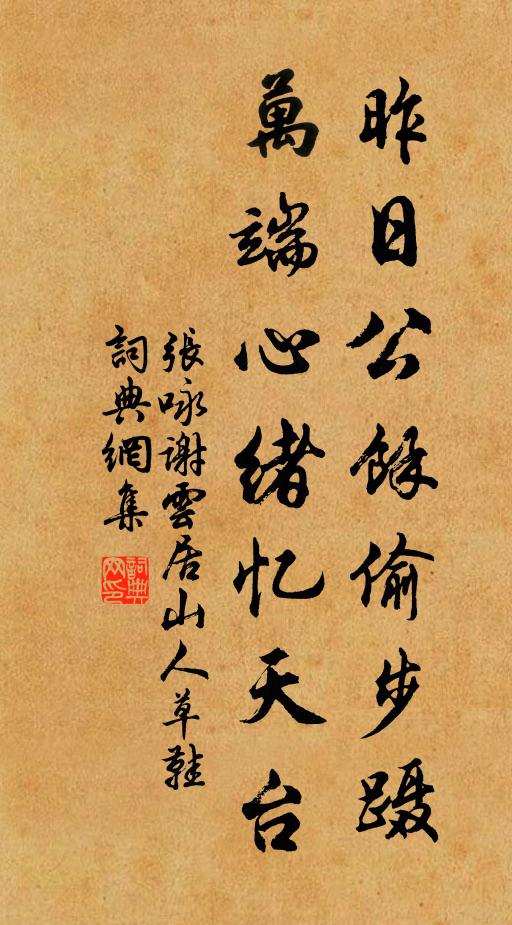 昨日公餘偷步蹑
萬端心緒忆天台
張咏謝雲居山人草鞋
詞典網集
詞典网印